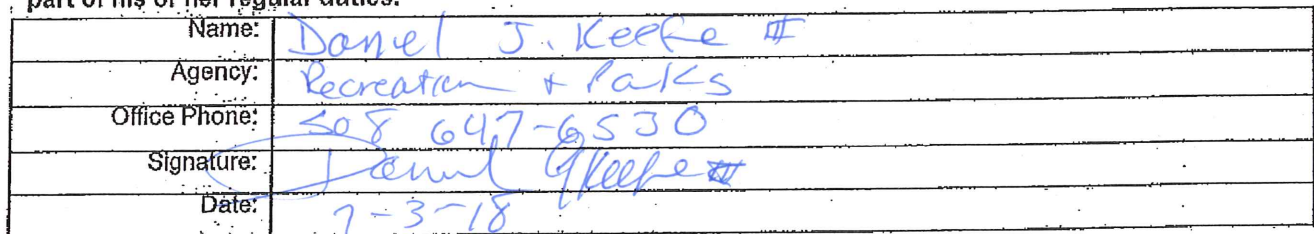 part of his or her regular duties.
Name: Daniel J. Keefe III
Agency: Recreation + Parks
Office Phone: 508 647-6530
Signature: Daniel J Keefe III
Date: 7-3-18